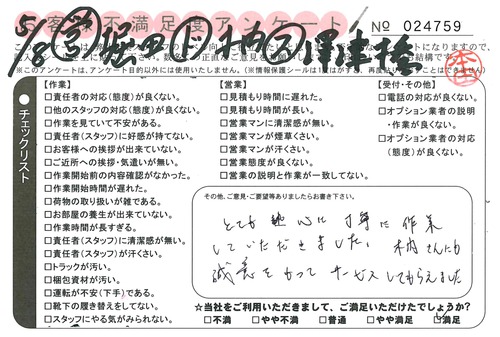 お客様不満足度アンケート
№ 024759
5/8
※このアンケートは、アンケート目的以外には使用いたしません。(※情報保護シールは1度はがすと、再度貼り
チェックリスト
【作業】
□責任者の対応(態度)が良くない。
□他のスタッフの対応(態度)が良くない。
□作業を見ていて不安がある。
□責任者(スタッフ)に好感が持てない。
□お客様への挨拶が出来ていない。
□ご近所への挨拶・気遣いが無い。
□作業開始前の内容確認がなかった。
□作業開始時間が遅れた。
□荷物の取り扱いが雑である。
□お部屋の養生が出来ていない。
□作業時間が長すぎる。
□責任者(スタッフ)に清潔感が無い。
□責任者(スタッフ)が汗くさい。
□トラックが汚い。
□梱包資材が汚い。
□運転が不安(下手)である。
□靴下の履き替えをしてない。
□スタッフにやる気がみられない。
【営業】
□見積もり時間に遅れた。
□見積もり時間が長い。
□営業マンに清潔感が無い。
□営業マンが煙草くさい。
□営業マンが汗くさい。
□営業態度が良くない。
□営業の説明と作業が一致してない。
【受付・その他】
□電話の対応が良くない。
□オプション業者の説明
・作業が良くない。
□オプション業者の対応
(態度)が良くない。
その他、ご意見・ご要望等ありましたらお書き下さい。
とても熱心に丁寧に作業
していただきました。木内さんにも
誠意をもってサービスしてもらえました
☆当社をご利用いただきまして、ご満足いただけたでしょうか?
□不満 □やや不満 □普通 □やや満足 □満足